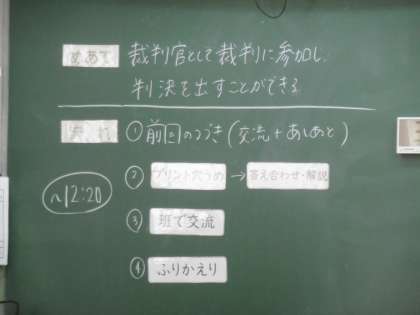 めあて 裁判官として裁判に参加し、
判決を出すことができる
流れ ① 前回のつづき(交流+あしあと)
② プリント穴うめ → 答え合わせ・解説
~12:20
③ 班で交流
④ ふりかえり